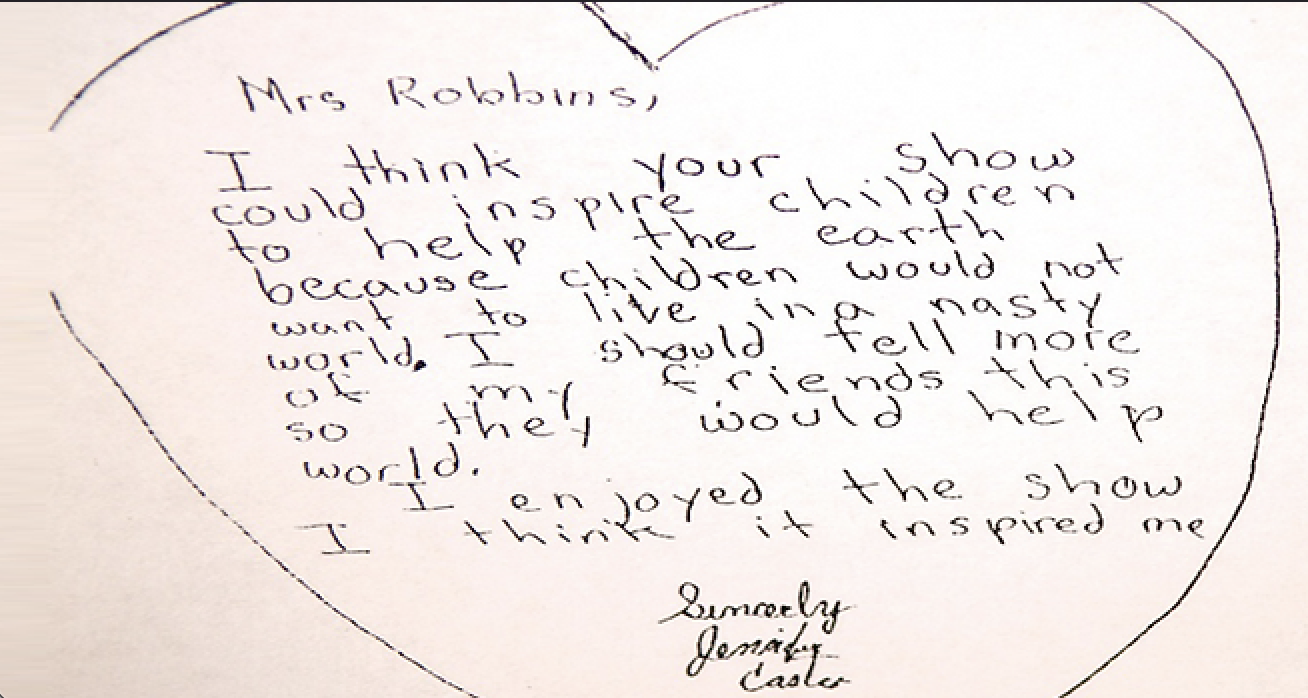 Mrs Robbins,
I think your show
could inspire children
to help the earth
because children would not
want to live in a nasty
world. I should tell more
of my friends this
so they would help
world.
I enjoyed the show
I think it inspired me
Sincerely
Jennifer